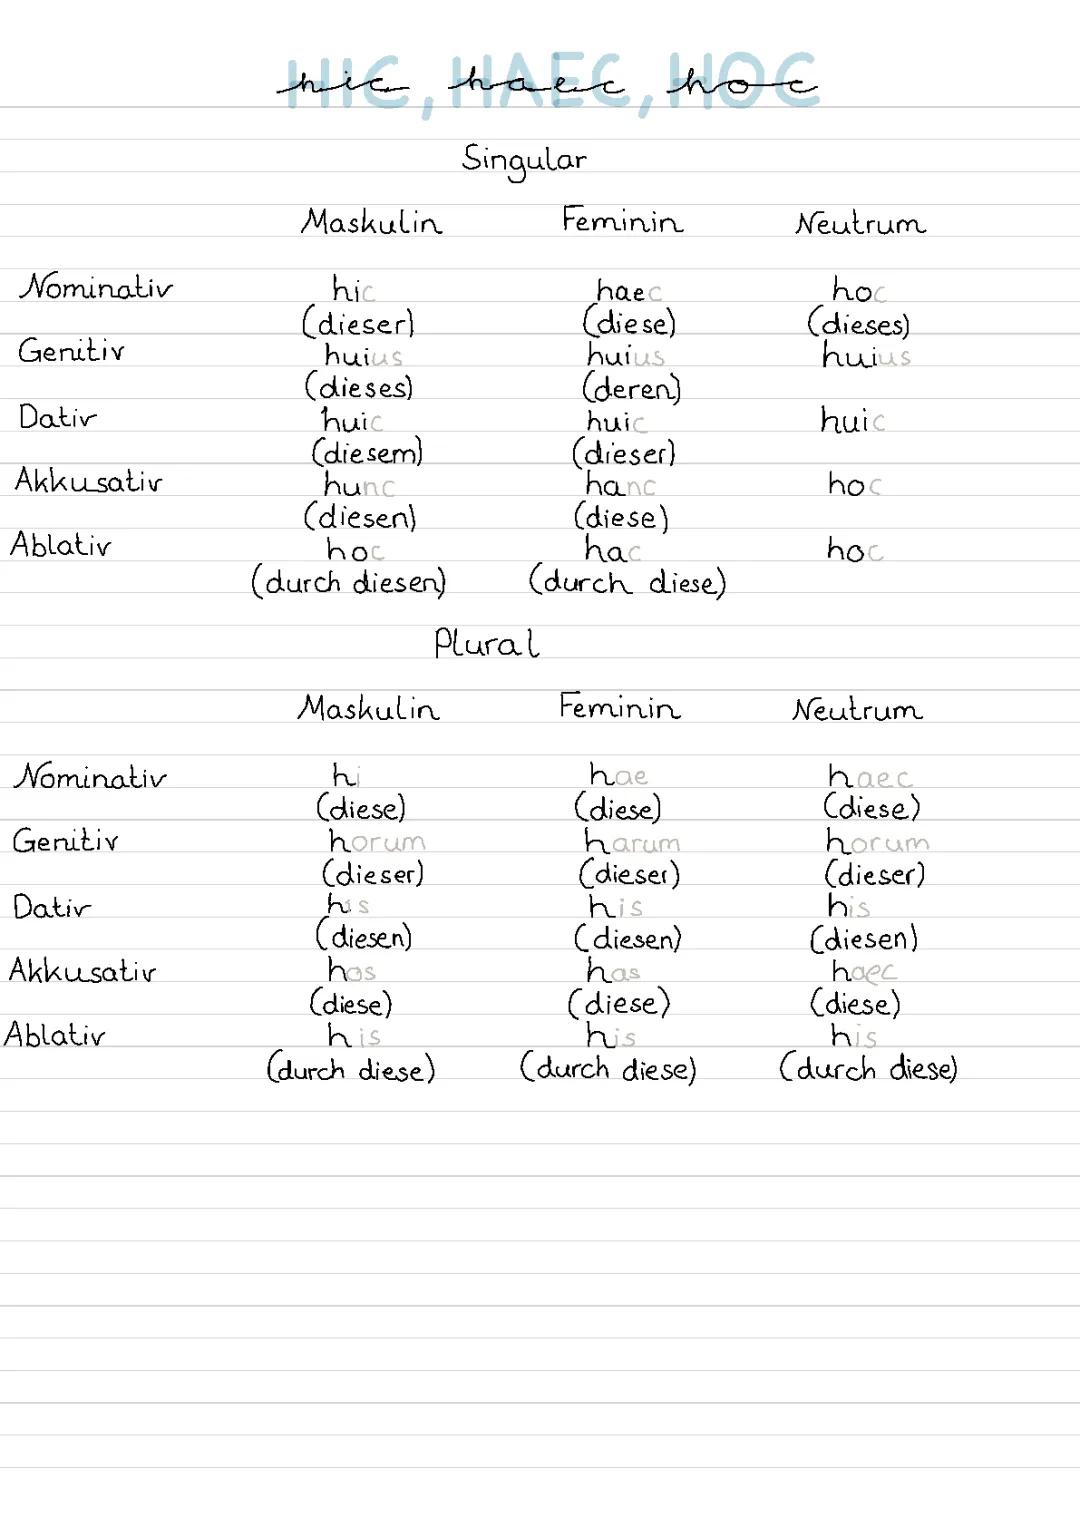 HIC, HAEC, HOC
hic haec hoc
Singular
Maskulin Feminin Neutrum
Nominativ hic haec hoc
(dieser) (diese) (dieses)
Genitiv huius huius huius
(dieses) (deren)
Dativ huic huic huic
(diesem) (dieser)
Akkusativ hunc hanc hoc
(diesen) (diese)
Ablativ hoc hac hoc
(durch diesen) (durch diese)
Plural
Maskulin Feminin Neutrum
Nominativ hi hae haec
(diese) (diese) (diese)
Genitiv horum harum horum
(dieser) (dieser) (dieser)
Dativ his his his
(diesen) (diesen) (diesen)
Akkusativ hos has haec
(diese) (diese) (diese)
Ablativ his his his
(durch diese) (durch diese) (durch diese)